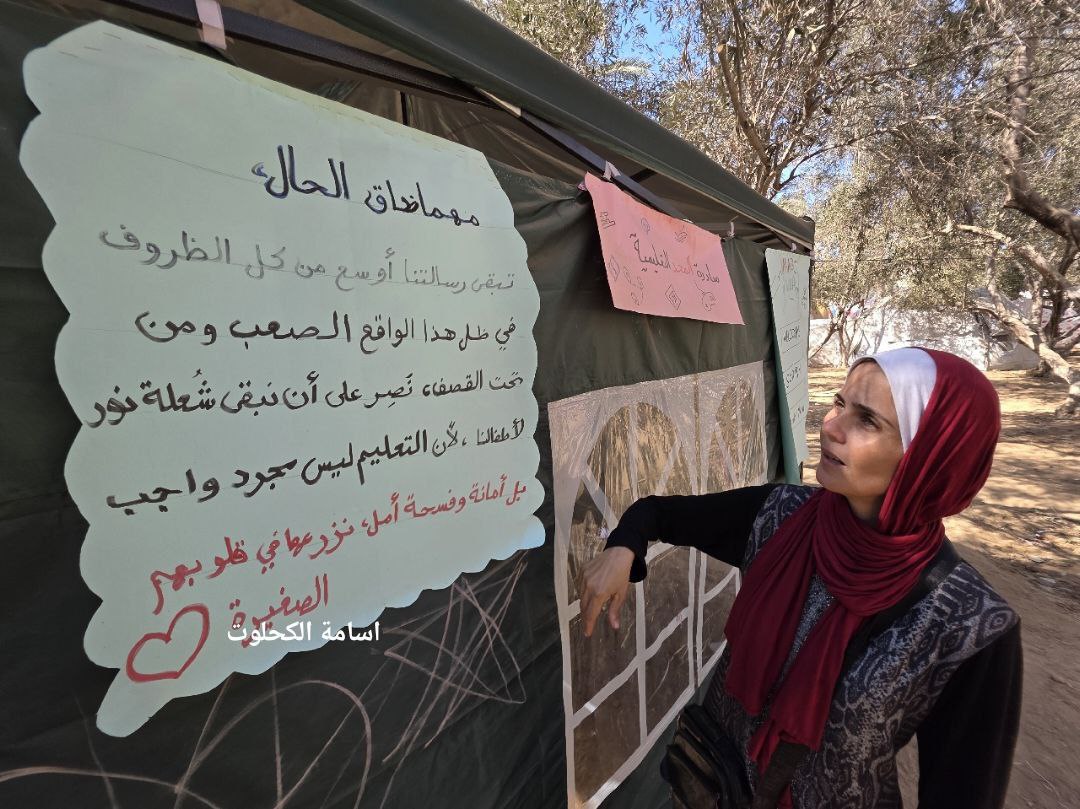 مهما ضاق الحال،
تبقى رسالتنا أوسع من كل الظروف
في ظل هذا الواقع الصعب ومن
تحت القصف، نَصِر على أن نبقى شُعلة نور
لأطفالنا، لأن التعليم ليس مجرد واجب
بل أمانة وفسحة أمل، نزرعها في قلوبهم
الصغيرة
اسامة الكحلوت
مبادرة المجد التعليمية